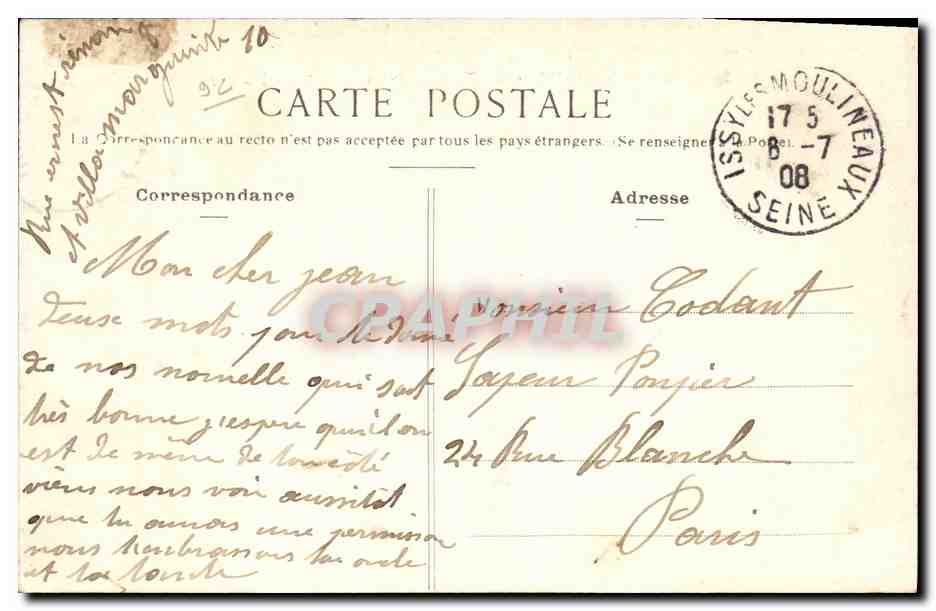 Rue ernest rénan
et villa marguerite 10
CARTE POSTALE
La Correspondance au recto n'est pas acceptée par tous les pays étrangers. (Se renseigner à la Poste).
ISSY LES MOULINEAUX
17 5
8 -7
08
SEINE
Correspondance
Adresse
Mon cher jean
deuse mots pour te doné
de nos nouvelle qui sont
très bonne j'espere quil en
est de même de ton côté
viens nous voir aussitôt
que tu auras une permission
nous t'enbrassons ton oncle
et ta tante
Monsieur Todant
Sapeur Ponpier
24 Rue Blanche
Paris
CPAPHIL